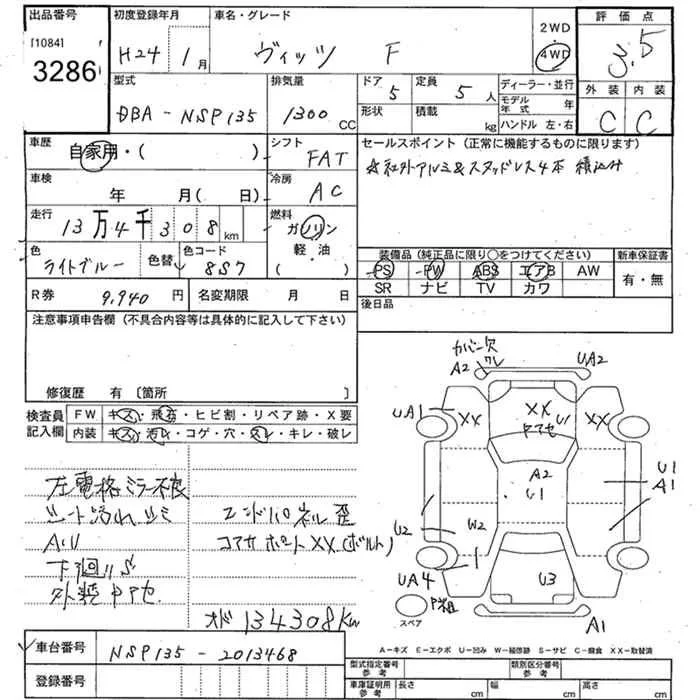 出品番号
[1084]
3286
初度登録年月
H24 1月
車名・グレード
ヴィッツ F
2WD
4WD
評価点
3.5
外装 内装
C C
型式
DBA-NSP135
排気量
1300 CC
ドア 5
定員 5人
形状
積載 kg
ディーラー・並行
モデル年式 年
ハンドル 左・右
車歴
自家用・( )
シフト
FAT
セールスポイント (正常に機能するものに限ります)
☆社外アルミ&スタッドレス4本 積込み
車検
年 月( 日)
冷房
AC
走行
13万4千308km
燃料
ガソリン
軽・油
( )
色
ライトブルー
色替
色コード
8S7
装備品(純正品に限り○をつけてください)
PS PW ABS エアB AW
SR ナビ TV カワ
新車保証書
有・無
R券 9,940円
名変期限 月 日
後日品
注意事項申告欄(不具合内容等は具体的に記入して下さい)
修復歴 有 〔箇所 〕
検査員記入欄
FW キズ・飛石・ヒビ割・リペア跡・X要
内装 キズ・汚レ・コゲ・穴・スレ・キレ・破レ
左電格ミラー不良
シート汚れ シミ
下廻りS
外装 中アセ
エンドパネル歪
コアサポートXX(ボルト)
134308km
カバー欠
A2 ワレ
UA2
UA1
XX
XX
中アセ
U1
XX
A2
U1
U1
A1
U2
W2
UA4
U3
A1
スペア
A-キズ E-エクボ U-凹み W-補修跡 S-サビ C-腐食 XX-取替済
車台番号 NSP135-2013468
登録番号
型式指定番号 参考
類別区分番号 参考
車庫証明用 参考
長さ cm
幅 cm
高さ cm